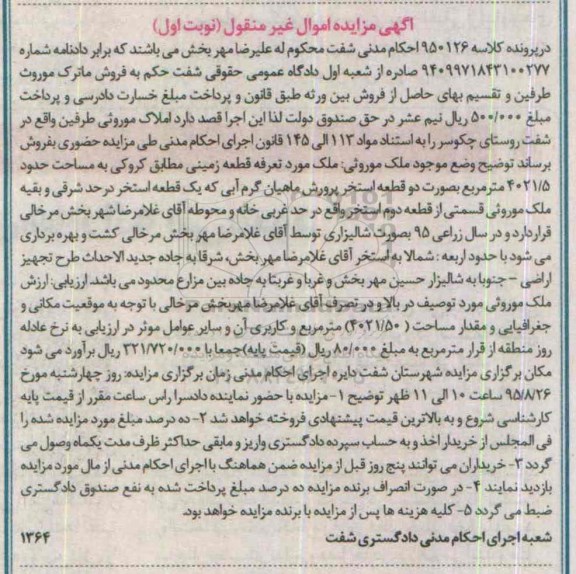 آگهی مزایده اموال غیر منقول (نوبت اول)
درپرونده کلاسه ۹۵۰۱۲۶ احکام مدنی شفت محکوم له علیرضا مهر بخش می باشند که برابر دادنامه شماره
۹۴۰۹۹۷۱۸۴۳۱۰۰۲۷۷ صادره از شعبه اول دادگاه عمومی حقوقی شفت حکم به فروش ماترک موروث
طرفین و تقسیم بهای حاصل از فروش بین ورثه طبق قانون و پرداخت مبلغ خسارت دادرسی و پرداخت
مبلغ ۵۰۰/۰۰۰ ریال نیم عشر در حق صندوق دولت لذا این اجرا قصد دارد املاک موروثی طرفین واقع در
شفت روستای چکوسر را به استناد مواد ۱۱۳ الی ۱۴۵ قانون اجرای احکام مدنی طی مزایده حضوری بفروش
برساند توضیح وضع موجود ملک موروثی: ملک مورد تعرفه قطعه زمینی مطابق کروکی به مساحت حدود
۴۰۲۱/۵ مترمربع بصورت دو قطعه استخر پرورش ماهیان گرم آبی که یک قطعه استخر در حد شرقی و بقیه
ملک موروثی قسمتی از قطعه دوم استخر واقع در حد غربی خانه و محوطه آقای غلامرضا شهر بخش مرخالی
قرار دارد و در سال زراعی ۹۵ بصورت شالیزاری توسط آقای غلامرضا مهر بخش مرخالی کشت و بهره برداری
می شود با حدود اربعه : شمالا به استخر آقای غلامرضا مهر بخش، شرقا به جاده جدید الاحداث طرح تجهیز
اراضی – جنوبا به شالیزار حسین مهر بخش و غربا و غربتا به جاده بین مزارع محدود می باشد. ارزیابی: ارزش
ملک موروثی مورد توصیف در بالا و در تصرف آقای غلامرضا مهربخش مرخالی با توجه به موقعیت مکانی و
جغرافیایی و مقدار مساحت ( ۴۰۲۱/۵۰) مترمربع و کاربری آن و سایر عوامل موثر در ارزیابی به نرخ عادله
روز منطقه از قرار مترمربع به مبلغ ۸۰/۰۰۰ ریال (قیمت پایه) جمعا با ۳۲۱/۷۲۰/۰۰۰ ریال برآورد می شود
مکان برگزاری مزایده شهرستان شفت دایره اجرای احکام مدنی زمان برگزاری مزایده: روز چهارشنبه مورخ
۹۵/۸/۲۶ ساعت ۱۰ الی ۱۱ ظهر توضیح ۱- مزایده با حضور نماینده دادسرا راس ساعت مقرر از قیمت پایه
کارشناسی شروع و به بالاترین قیمت پیشنهادی فروخته خواهد شد ۲- ده درصد مبلغ مورد مزایده شده را
فی المجلس از خریدار اخذ و به حساب سپرده دادگستری واریز و مابقی حداکثر ظرف مدت یکماه وصول می
گردد ۳- خریداران می توانند پنج روز قبل از مزایده ضمن هماهنگ با اجرای احکام مدنی از مال مورد مزایده
بازدید نمایند ۴- در صورت انصراف برنده مزایده ده درصد مبلغ پرداخت شده به نفع صندوق دادگستری
ضبط می گردد ۵- کلیه هزینه ها پس از مزایده با برنده مزایده خواهد بود.
شعبه اجرای احکام مدنی دادگستری شفت ۱۳۶۴